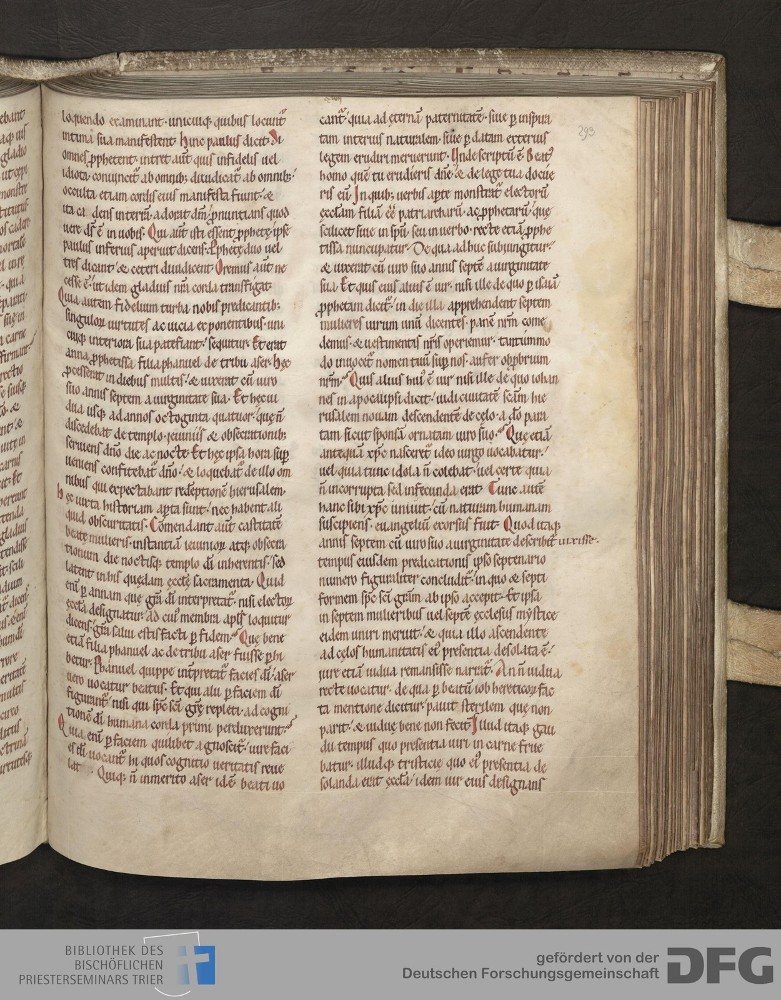 loquendo examinant· unicuiq; quibus locunt᷑
intima sua manifestent· Hinc paulus dicit· Si
omnes ꝓphetent· intret aut̄ quis infidelis uel
idiota· conuincit᷑ ab omnib; diiudicat᷑ ab omnib;
occulta etiam cordis eius manifesta fiunt· &
ita cadens adorat dm̄ ꝓnuntians quod
uere ds̄ ē in uobis· Qui aut̄ isti essent ꝓphetę ipse
paulus inferius aperuit dicens· Ꝓphetę duo uel
tres dicant· & ceteri diiudicent· Oremus aut̄ ne
cesse ē· ut idem gladius nr̄m corda transfigat·
Quia autem fidelium turba nobis predicantib;
singulorū uirtutes ac uicia exponentibus· uni
cuiq; interiora sua patefiant· sequitur· Et erat
anna ꝓphetissa filia phanuel de tribu aser· Hęc
ꝓcesserat in diebus multis· & uixerat cū uiro
suo annis septem a uirginitate sua· Et hęc ui
dua usq; ad annos octoginta quatuor· quę n̄
discedebat de templo· ieiuniis & obsecrationib;
seruiens dn̄o die ac nocte· Et hęc ipsa hora sup̄
ueniens confitebat᷑ dn̄o· & loquebat᷑ de illo om
nibus qui expectabant redēptionē hierusalem·
Hęc iuxta historiam apta sunt· nec habent ali
quid obscuritatis· Comendant aut̄ castitatē
beatę mulieris· instantiā ieiuniorū atq; obsecra
tionum die noctisq; templo dī inherentis· Sed
latent in his quędam ęcctę sacramenta· Quid
eni᷑ ꝑ annam quę gr̄a dī interpretat᷑· nisi electorū
ęcctā designatur· ad cui᷒ membra apt̄s loquitur
dicens· gr̄a salui estis facti ꝑ fidem· Quę bene
etiā filia phanuel ac de tribu aser fuisse ꝑhi
betur· Phanuel quippe int̄pretat᷑ facies dī· aser
uero uocatur beatus· Et qui alii ꝑ faciem dī
figurant᷑· nisi qui spē sc̄i gr̄ę repleti· ad cogni
tionē dī humana corda primi perduxerunt·
Quia eni᷑ ꝑ faciem quilibet agnoscit᷑· iure faci
es dī uocant᷑ hi quos cognitio ueritatis reue
lat· Quiq; n̄ inmerito aser id ē beati uo
cant᷑· quia ad ęternā paternitatē· siue ꝑ inspira
tam interius naturalem· siue ꝑ datam exterius
legem erudiri meruerunt· Unde scriptū ē· Beat᷒
homo quē tu erudieris dn̄e· & de lege tua docue
ris eū· In quib; uerbis apte monstrat᷑ electorū
ęcctam filiā eē patriarcharū ac ꝓphetarū· quę
scilicet siue in sp̄ū· seu in uerbo· recte etiā ꝓphe
tissa nuncupatur· De qua adhuc subiungitur·
& uixerat cū uiro suo annis septē a uirginitate
sua· Et quis eius alius ē uir· nisi ille de quo ꝑ isaiā
ꝓphetam dicit᷑· in die illa apprehendent septem
mulieres uirum unū dicentes· panē nr̄m come
demus· & uestimentis nr̄is operiemur· tantummo
do inuocet᷑ nomen tuū sup̄ nos· aufer obprobrium
nr̄m· Quis alius hui᷒ ē uir nisi ille de quo iohan
nes in apocalipsi dicit· uidi ciuitatē sc̄am hie
rusalem nouam descendentē de cęlo· a dō para
tam sicut sponsā ornatam uiro suo· Quę etiā
antequā xp̄c nasceret᷑· ideo uirgo uocabatur·
uel quia tunc idola n̄ colebat· uel certe quia
n̄ incorrupta sed infecunda erat· Tunc autē
hanc sibi xp̄c iniunxit· cū naturam humanam
suscipiens· euangeliū exorsus fuit· Quod itaq;
annis septem cū uiro suo a uirginitate describit᷑ uixisse·
tempus eiusdem predicationis ipso septenario
numero figuraliter concludit᷑· in quo & septi
formem spc̄ sc̄i gr̄am ab ipso accepit· Et ipsa
in septem mulieribus uel septē ęcclesiis mystice
eidem uniri meruit· & quia illo ascendente
ad cęlos humanitatis ei᷒ presentia desolata ē·
iure etiā uidua remansisse narrat᷑· An n̄ uidua
recte uocatur· de qua ꝑ beatū iob hereticorū fac
ta mentione dicitur· pauit sterilem quę non
parit· & uiduę bene non fecit· Illud itaq; gau
dii tempus quo presentia uiri in carne frue
batur· illudq; tristicię quo ei᷒ presentia de
solanda erat ęccta· idem uir eius designans
293
BIBLIOTHEK DES
BISCHÖFLICHEN
PRIESTERSEMINARS TRIER
gefördert von der
Deutschen Forschungsgemeinschaft
DFG